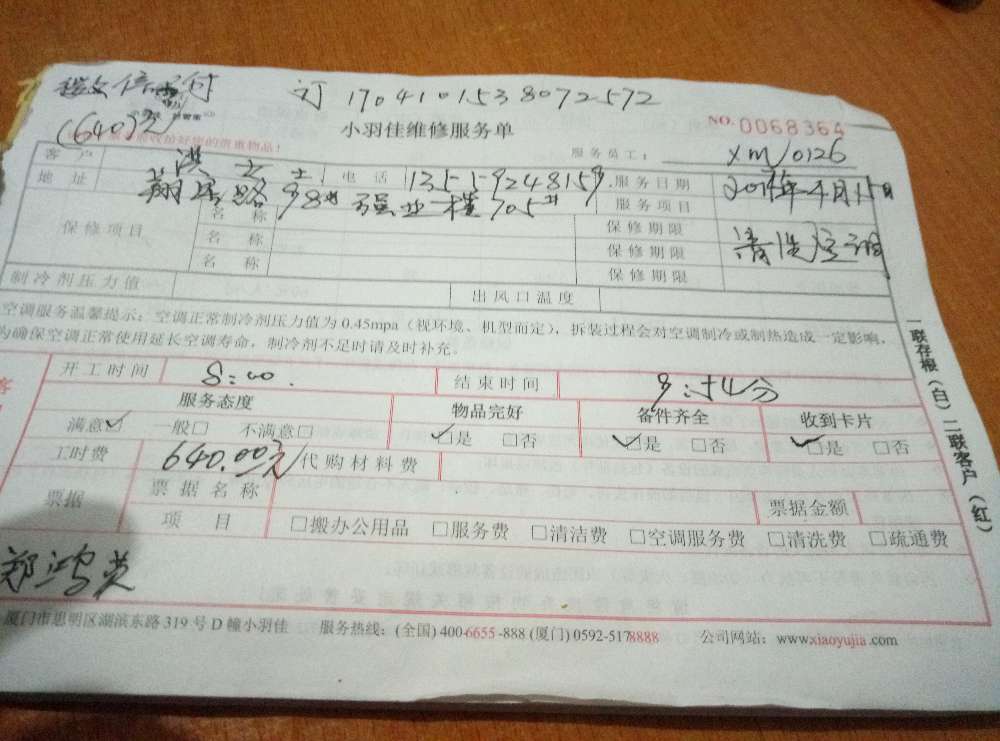 订 1704101538072572
(640元)
小羽佳维修服务单
NO. 0068364
服务员工: XM/0126
客户 洪女士 电话 服务日期 2017年4月15日
地址 98# 强业楼705# 服务项目 清洗空调
保修项目 名称 保修期限
名称 保修期限
名称 保修期限
制冷剂压力值 出风口温度
空调服务温馨提示:空调正常制冷剂压力值为0.45mpa(视环境、机型而定),拆装过程会对空调制冷或制热造成一定影响,
为确保空调正常使用延长空调寿命,制冷剂不足时请及时补充。
开工时间 8:00. 结束时间
服务态度 物品完好 备件齐全 收到卡片
满意☑ 一般□ 不满意□ ☑是 □否 ☑是 □否 ☑是 □否
工时费 640.00元 代购材料费
票据 票据名称 票据金额
项目 □搬办公用品 □服务费 □清洁费 □空调服务费 □清洗费 □疏通费
郑鸿英
厦门市思明区湖滨东路319号D幢小羽佳 服务热线:(全国) 400-6655-888 (厦门) 0592-5178888 公司网站:www.xiaoyujia.com
一联存根(白)二联客户(红)